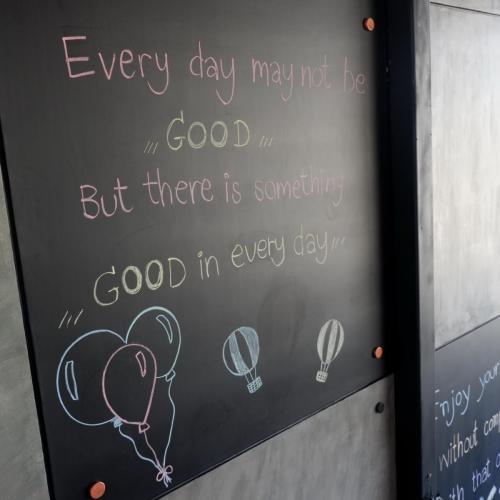 Every day may not be
GOOD
But there is something
GOOD in every day
Enjoy your
without
with that